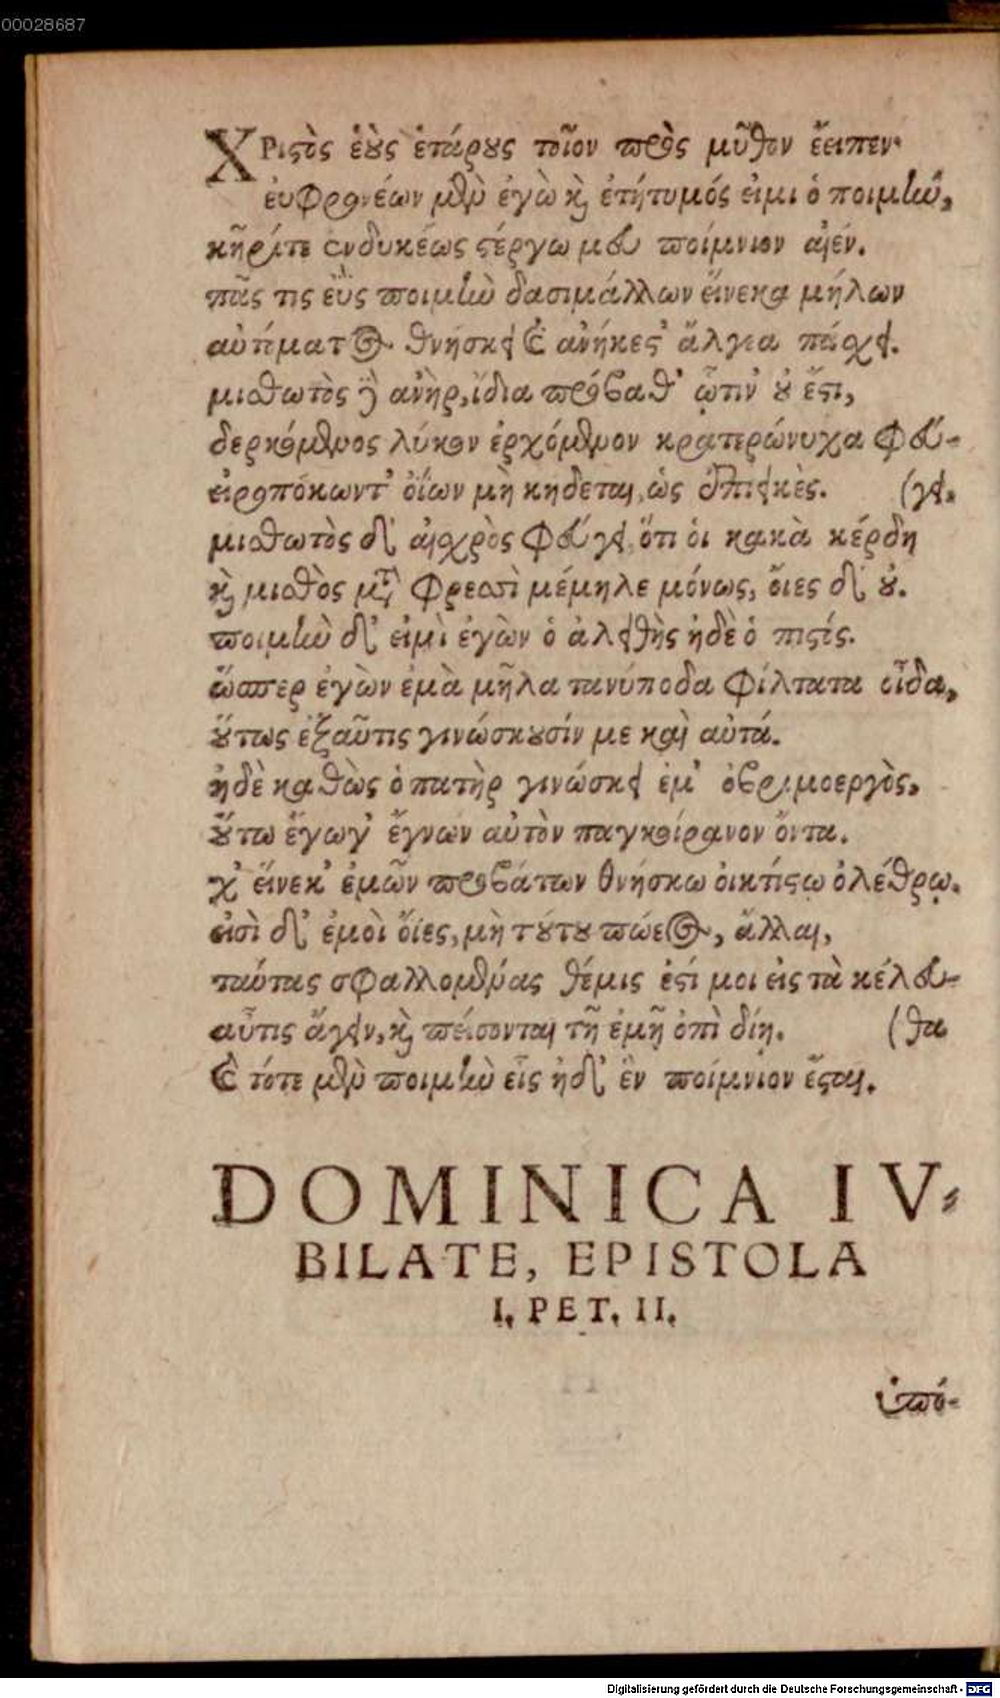 00028687
ΧΡιστὸς ἑοὺς ἑτάρους τοῖον πρὸς μῦθον ἔειπεν·
ἐυφρονέων μὲν ἐγὼ καὶ ἐτήτυμός εἰμι ὁ ποιμὴν,
κῆρί τε ἐνδυκέως στέργω μευ ποίμνιον αἰέν.
πᾶς τις ἐῢς ποιμὴν δασιμάλλων εἵνεκα μήλων
αὐτίματος θνήσκει καὶ ἀνήκεστ' ἄλγεα πάσχει.
μισθωτὸς δὲ ἀνὴρ, ἴδια πρόβαθ' ᾧτιν' οὐ ἔστι,
δερκόμενος λύκον ἐρχόμενον κρατερώνυχα φεύ-
εἰροπόκων τ' ὀΐων μὴ κήδεται, ὡς ἐπιεικὲς. (γει.
μισθωτὸς δ' αἰσχρὸς φεύγει, ὅτι οἱ κακὰ κέρδη
καὶ μισθὸς μετὰ φρεσὶ μέμηλε μόνως, ὄιες δ' οὐ.
ποιμὴν δ' εἰμὶ ἐγὼν ὁ ἀληθὴς ἠδὲ ὁ πιστός.
ὥσπερ ἐγὼν ἐμὰ μῆλα τανύποδα φίλτατα οἶδα,
οὕτως ἐξαῦτις γινώσκουσίν με καὶ αὐτά.
ἠδὲ καθὼς ὁ πατὴρ γινώσκει ἐμ' ὀβριμοεργὸς,
οὕτω ἔγωγ' ἔγνων αὐτὸν παγκοίρανον ὄντα.
χ' εἵνεκ' ἐμῶν προβάτων θνήσκω οἰκτίστῳ ὀλέθρῳ.
εἰσὶ δ' ἐμοὶ ὄιες, μὴ τούτου πώεος, ἄλλαι,
ταύτας σφαλλομένας θέμις ἐστί μοι εἰς τὰ κέλευ-
αὖτις ἄγειν, καὶ πείσονται τῇ ἐμῇ ὀπὶ δίῃ. (θα
καὶ τότε μὲν ποιμὴν εἷς ἠδ' ἓν ποίμνιον ἔσται.
DOMINICA IV-
BILATE, EPISTOLA
I. PET. II.
ὑπό-
Digitalisierung gefördert durch die Deutsche Forschungsgemeinschaft - DFG